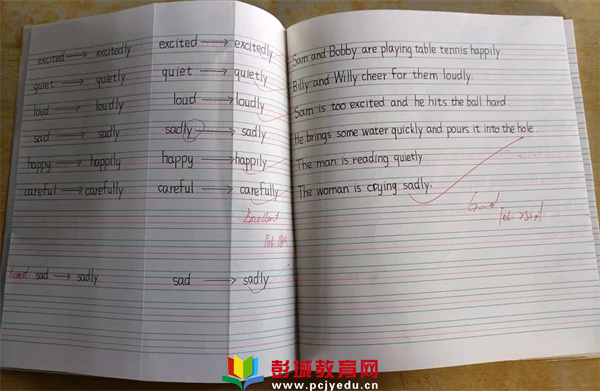 excited → excitedly excited → excitedly
quiet → quietly quiet → quietly
loud → loudly loud → loudly
sad → sadly sadly → sadly
happy → happily happy → happily
careful → carefully careful → carefully
Excellent
sad → sadly sad → sadly
Sam and Bobby are playing table tennis happily.
Billy and Willy cheer for them loudly.
Sam is too excited and he hits the ball hard.
He brings some water quickly and pours it into the hole.
The man is reading quietly.
The woman is crying sadly.
Good
彭城教育网
www.pcjyedu.cn